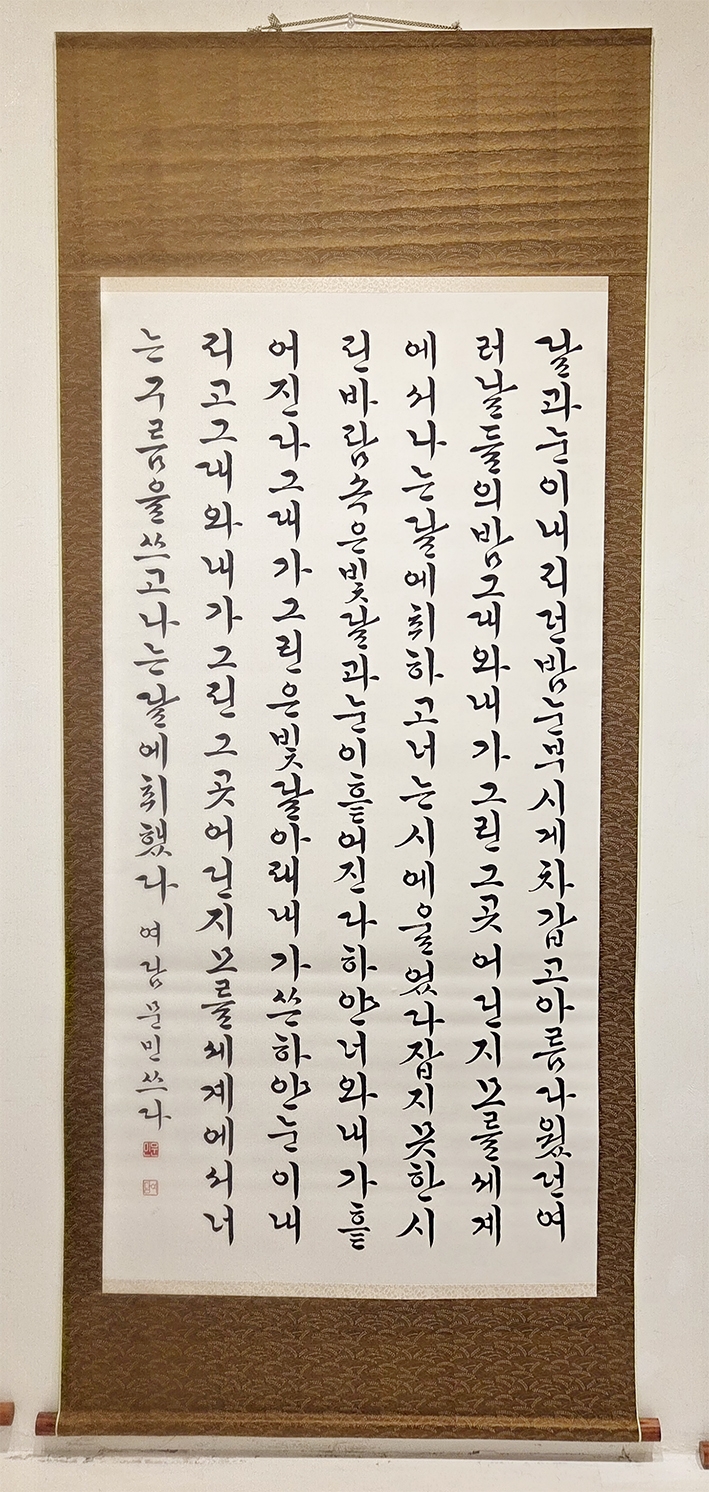 달과눈이내리던밤눈부시게차갑고아름다웠던여
러날들의밤그대와내가그린그곳어딘지모를세계
에서나는달에취하고너는시에울었다잡지못한시
린바람속은빛달과눈이흩어진다하얀너와내가흩
어진다그대가그린은빛달아래내가쓴하얀눈이내
리고그대와내가그린그곳어딘지모를세계에서너
는구름을쓰고나는달에취했다 문민쓰다